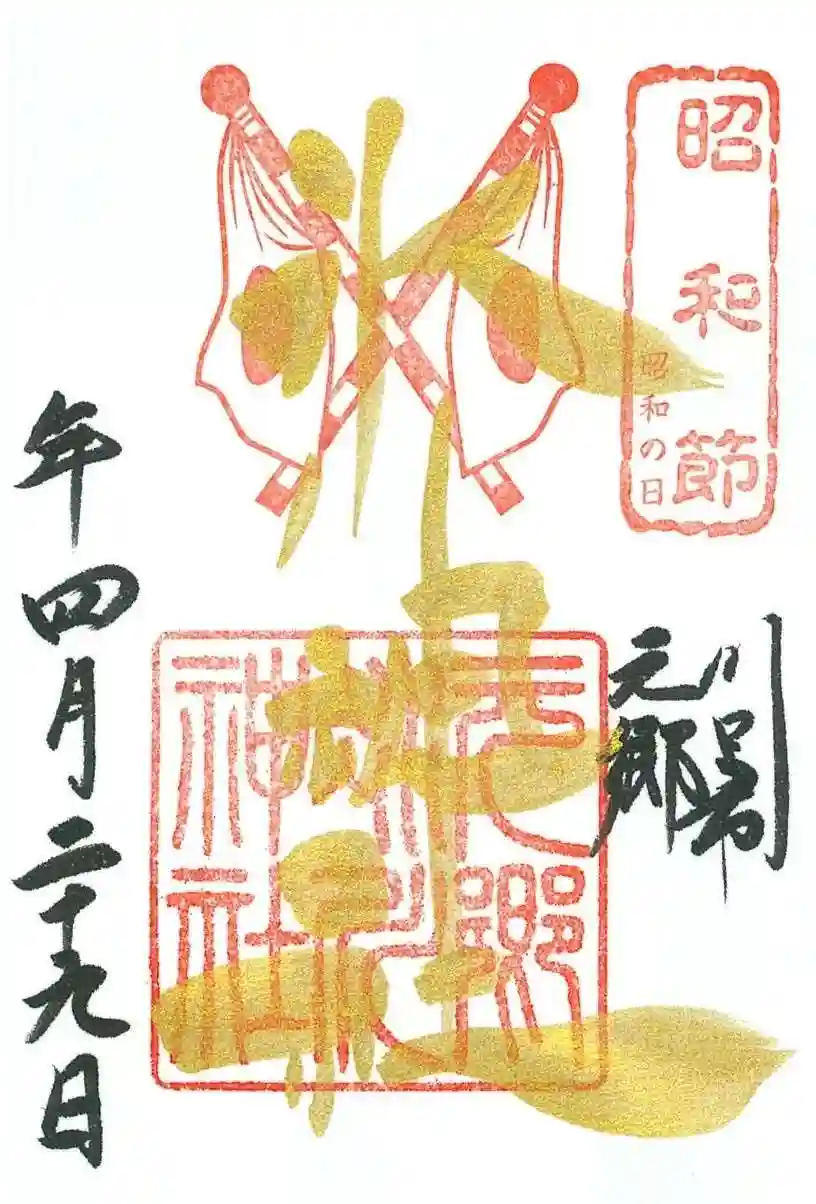 昭和節
昭和の日
川口市
元郷
氷
元郷
氷川
神社
年四月二十九日